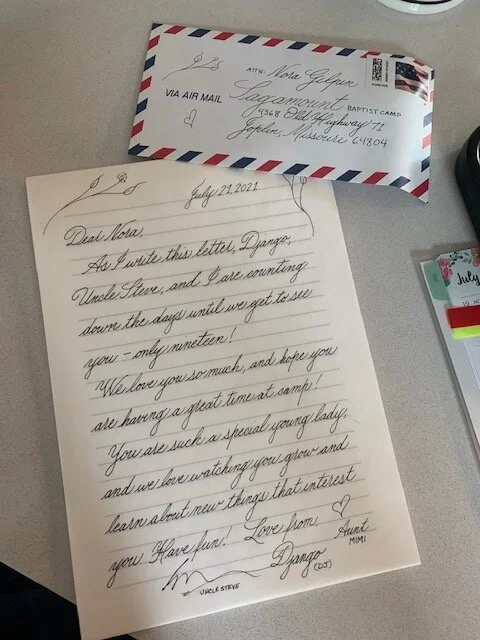 ATTN: Nora Gilpin
Sagamount BAPTIST CAMP
VIA AIR MAIL
4368 Old Highway 71
Joplin, Missouri 64804
July 21, 2021
Dear Nora,
As I write this letter, Django,
Uncle Steve, and I are counting
down the days until we get to see
you - only nineteen!
We love you so much, and hope you
are having a great time at camp!
You are such a special young lady,
and we love watching you grow and
learn about new things that interest
you. Have fun! Love from,
Aunt
MIMI
Django
(DJ)
UNCLE STEVE
July